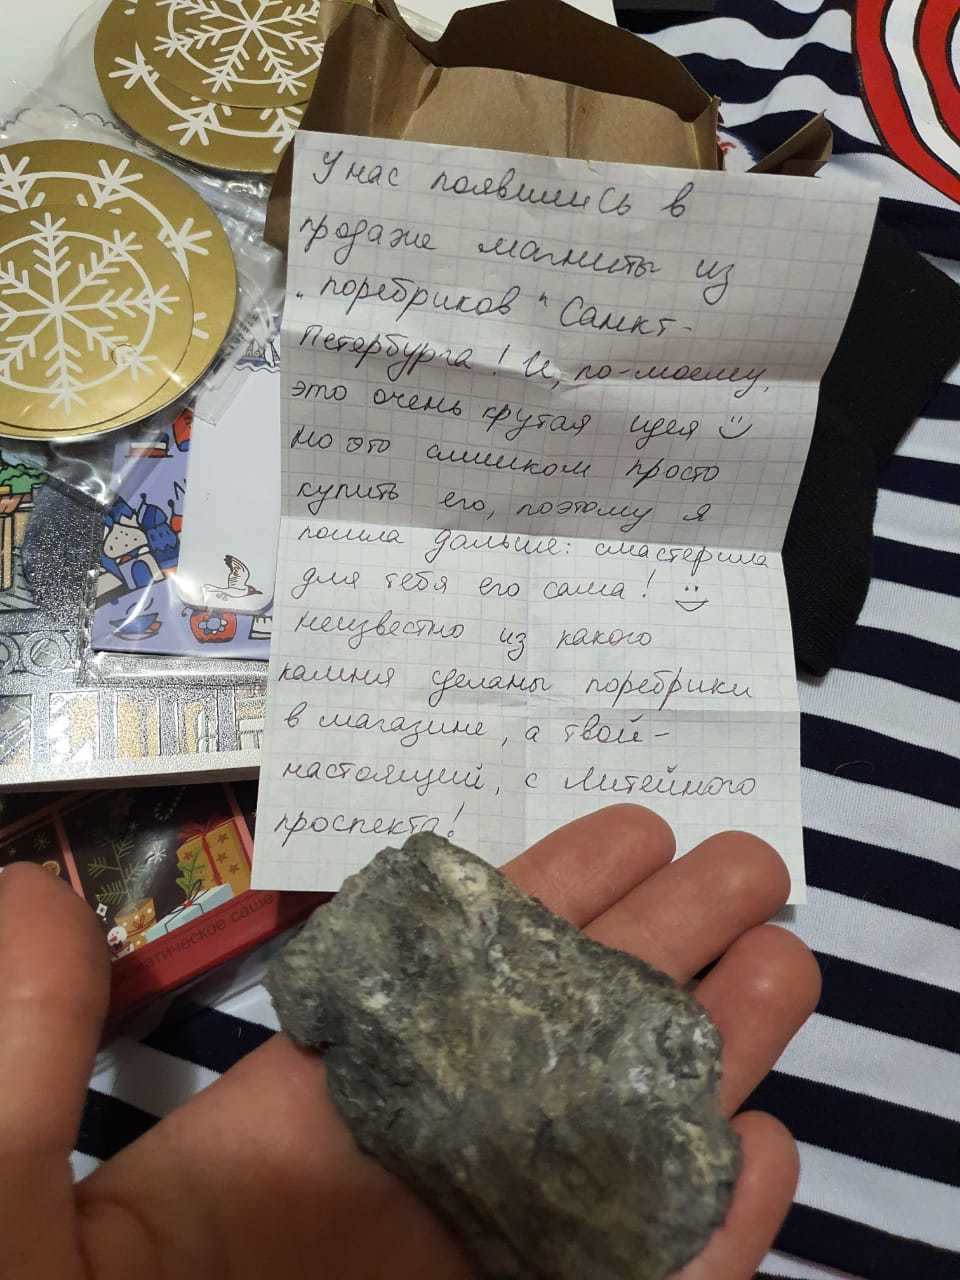 У нас появились в
продаже магниты из
„поребриков“ Санкт-
Петербурга! И, по-моему,
это очень крутая идея
но это слишком просто
купить его, поэтому я
пошла дальше: смастерила
для тебя его сама!
неизвестно из какого
камня сделаны поребрики
в магазине, а твой-
настоящий, с Литейного
проспекта!
саше